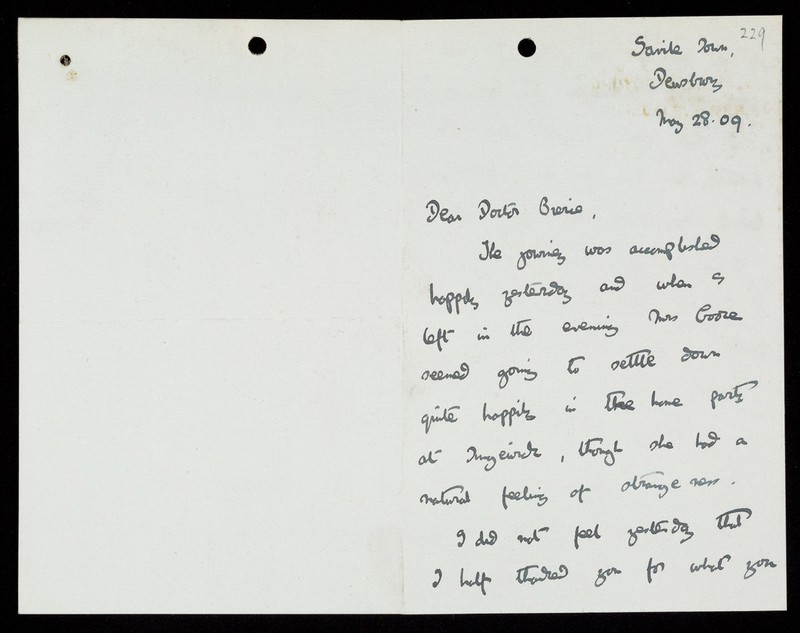 229
Savile Town,
Dewsbury
May 28. 09.
Dear Doctor
The journey was accomplished
happily yesterday and when
left in the evening Mrs
seemed going to settle down
quite happily in the home party
at , though she had a
natural feeling of strangeness.
I did not feel yesterday that
I half thanked you for what you